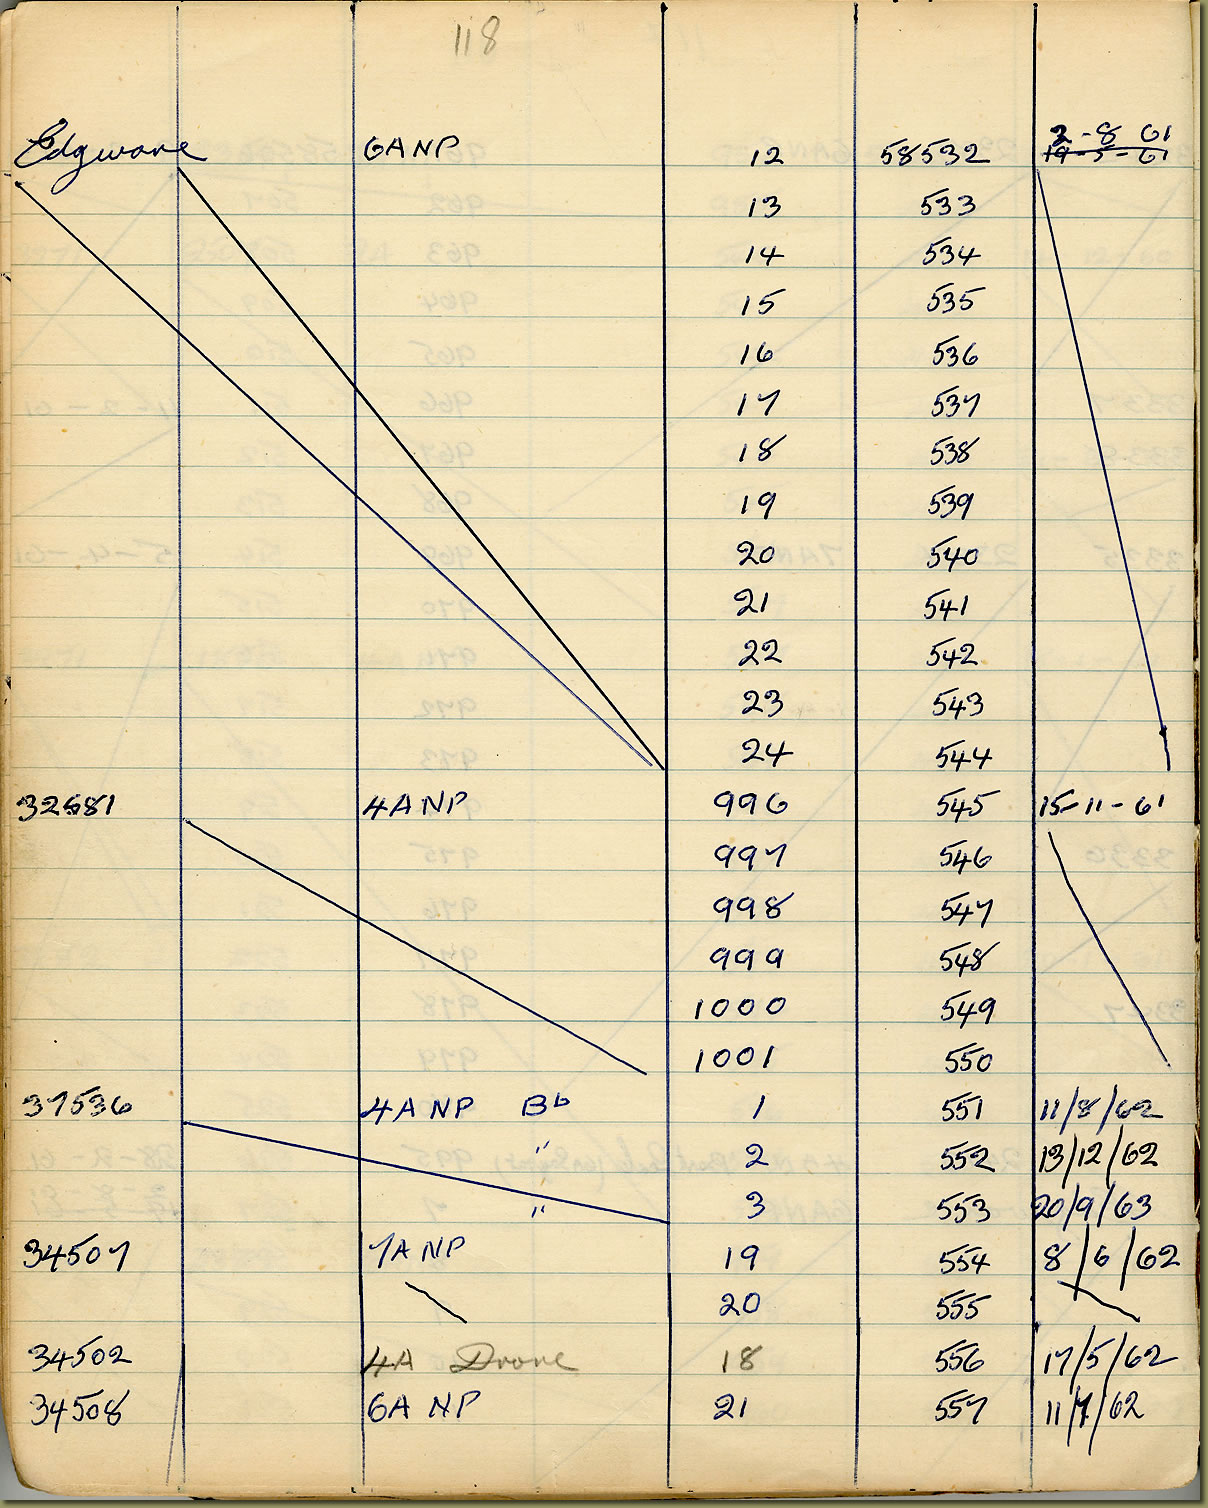 118
2-8 61
Edgware 6ANP 12 58532 19-5-61
13 533
14 534
15 535
16 536
17 537
18 538
19 539
20 540
21 541
22 542
23 543
24 544
32681 4ANP 996 545 15-11-61
997 546
998 547
999 548
1000 549
1001 550
37536 4ANP Bb 1 551 11/8/62
" 2 552 13/12/62
" 3 553 20/9/63
34507 7ANP 19 554 8/6/62
20 555
34502 4A Drone 18 556 17/5/62
34508 6A NP 21 557 11/7/62